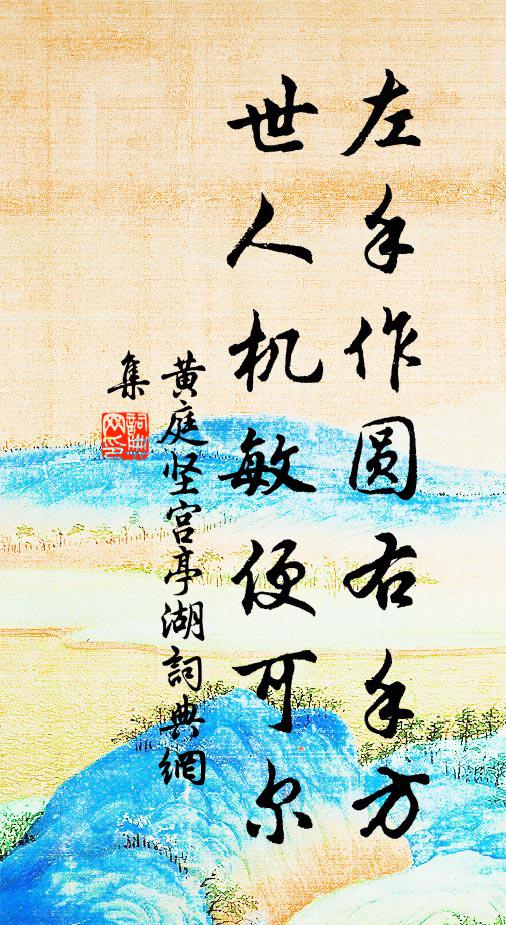 左手作圆右手方
世人机敏便可尔
黄庭坚宫亭湖詞典網
集
詞典網